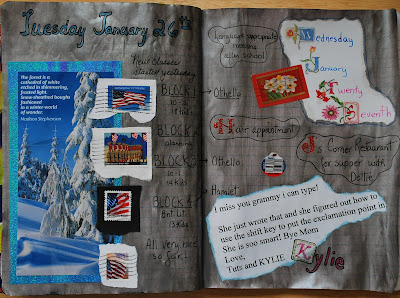 Tuesday January 26th
The forest is a
cathedral of white
etched in shimmering,
frosted light.
Snow-sheathed boughs
fashioned
in a winter-world
of wonder.
Madison Stephenson
New classes
started yesterday
BLOCK 1
10-
18 kids
BLOCK 2
planning
BLOCK 3
10-
14 kids
BLOCK 4
Brit Lit
13 Kids
All very nice
so far!
Language appropriate
meeting
after school
Othello
Hair appointment
Othello
Hamlet
Wednesday
January
Twenty
Seventh
J's Corner Restaurant
for supper with
Dottie
I miss you grammy i can type!
She just wrote that and she figured out how to
use the shift key to put the exclamation point in.
She is soo smart! Bye Mom
Love,
Tuts and KYLIE
Kylie